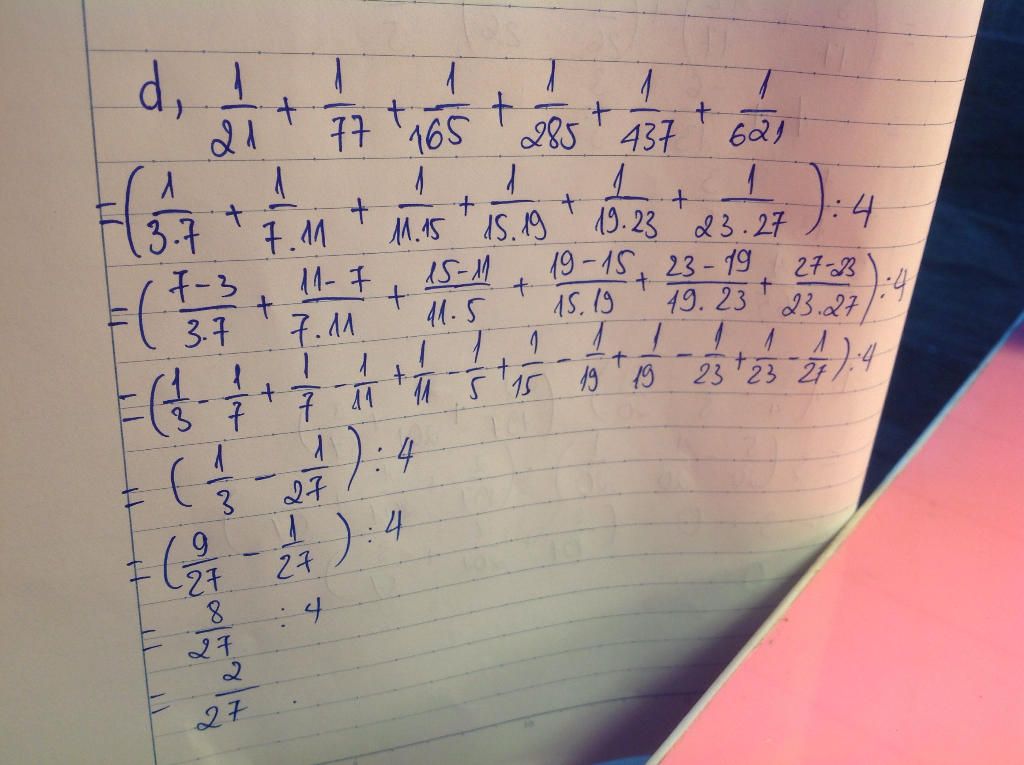 d, 1/21 + 1/77 + 1/165 + 1/285 + 1/437 + 1/621
= (1/3.7 + 1/7.11 + 1/11.15 + 1/15.19 + 1/19.23 + 1/23.27) : 4
= (7-3/3.7 + 11-7/7.11 + 15-11/11.5 + 19-15/15.19 + 23-19/19.23 + 27-23/23.27) : 4
= (1/3 - 1/7 + 1/7 - 1/11 + 1/11 - 1/5 + 1/15 - 1/19 + 1/19 - 1/23 + 1/23 - 1/27) : 4
= (1/3 - 1/27) : 4
= (9/27 - 1/27) : 4
= 8/27 : 4
= 2/27 .